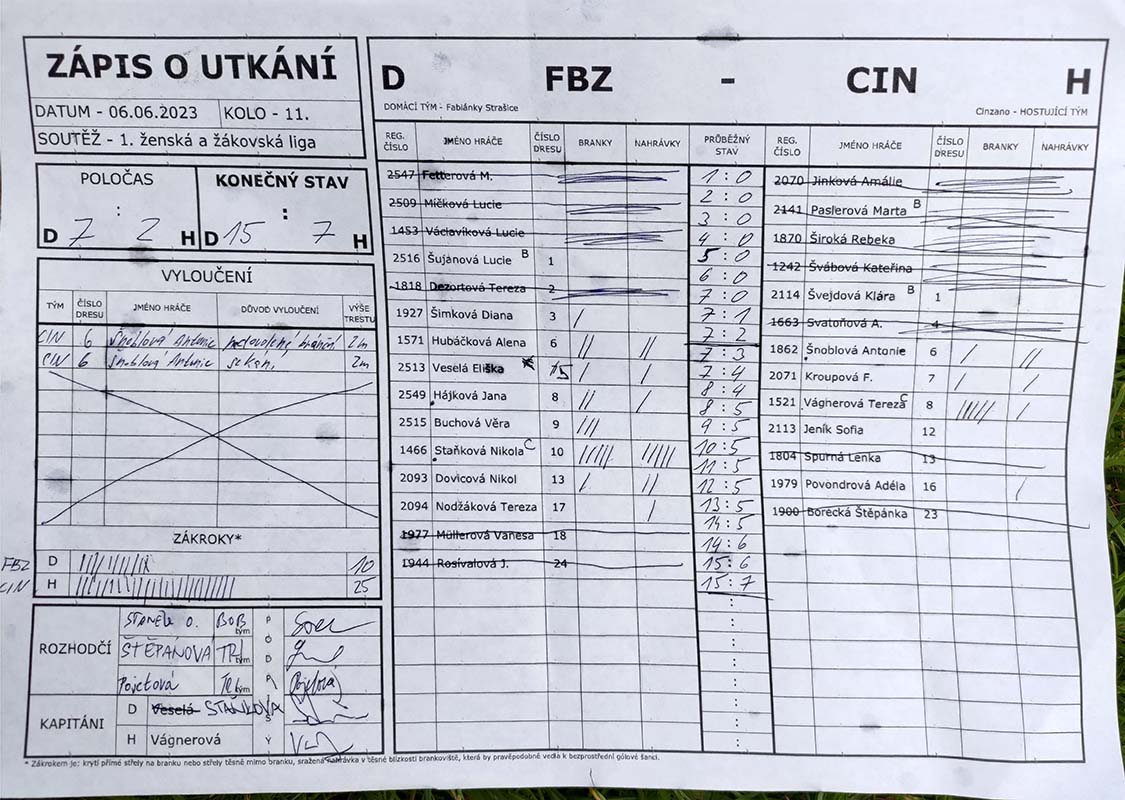 ZÁPIS O UTKÁNÍ
DATUM - 06.06.2023 KOLO - 11.
SOUTĚŽ - 1. ženská a žákovská liga
POLOČAS KONEČNÝ STAV
D 7 : 2 H D 15 : 7 H
VYLOUČENÍ
TÝM ČÍSLO DRESU JMÉNO HRÁČE DŮVOD VYLOUČENÍ VÝŠE TRESTU
CIN 6 Šnoblová Antonie nedovolené bránění 2m
CIN 6 Šnoblová Antonie sekání 2m
ZÁKROKY*
FBZ D 10
CIN H 25
ROZHODČÍ
STANĚK O. BOB tým
ŠTĚPÁNOVÁ TRI tým
Pojetová tým
PODPISY
KAPITÁNI
D Veselá STAŇKOVÁ
H Vágnerová
D FBZ - CIN H
DOMÁCÍ TÝM - Fabiánky Strašice Cinzano - HOSTUJÍCÍ TÝM
REG. ČÍSLO JMÉNO HRÁČE ČÍSLO DRESU BRANKY NAHRÁVKY PRŮBĚŽNÝ STAV REG. ČÍSLO JMÉNO HRÁČE ČÍSLO DRESU BRANKY NAHRÁVKY
2547 Fetterová M.
2509 Míčková Lucie
1453 Václavíková Lucie
2516 Šujanová Lucie B 1
1818 Dezortová Tereza 2
1927 Šimková Diana 3 /
1571 Hubáčková Alena 6 // //
2513 Veselá Eliška 15 / /
2549 Hájková Jana 8 // /
2515 Buchová Věra 9 ///
1466 Staňková Nikola C 10 ///// /////
2093 Dovicová Nikol 13 / //
2094 Nodžáková Tereza 17 /
1977 Müllerová Vanesa 18
1944 Rosívalová J. 24
1:0
2:0
3:0
4:0
5:0
6:0
7:0
7:1
7:2
7:3
7:4
8:4
8:5
9:5
10:5
11:5
12:5
13:5
14:5
14:6
15:6
15:7
2070 Jinková Amálie
2141 Paslerová Marta B
1870 Široká Rebeka
1242 Švábová Kateřina
2114 Švejdová Klára B 1
1663 Svatoňová A. 4
1862 Šnoblová Antonie 6 / //
2071 Kroupová F. 7 / /
1521 Vágnerová Tereza C 8 ///// /
2113 Jeník Sofia 12
1804 Spurná Lenka 13
1979 Povondrová Adéla 16 /
1900 Borecká Štěpánka 23
* Zákrokem je: krytí přímé střely na branku nebo střely těsně mimo branku, sražená nahrávka v těsné blízkosti brankoviště, která by pravděpodobně vedla k bezprostřední gólové šanci.